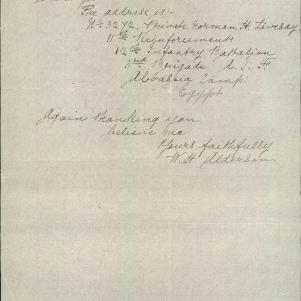 The address is :-
No 3272, Private Norman H. Livesay
11th Reinforcements
12th Infantry Battalion
3rd Brigade A. I. F.
Abbassia Camp
Egypt
Again thanking you
believe me
Yours faithfully
W. H. Alderson